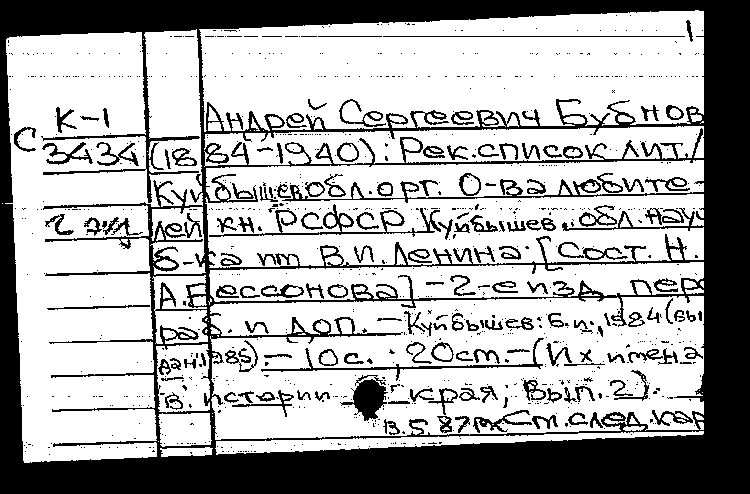 1
К-1
Андрей Сергеевич Бубнов
С 3434 (1884-1940): Рек.список лит./
Куйбышев.обл.орг. О-ва любите-
2 экз лей кн. РСФСР, Куйбышев. обл. науч
б-ка им. В.И.Ленина; [Сост. Н.
А.Бессонова] - 2-е изд., пере
раб. и доп. - Куйбышев: Б.и., 1984 (вы
дан.1985). - 10с. ; 20см. - (Их имена
в истории края; Вып. 2).
13.5.87 См.след.кар